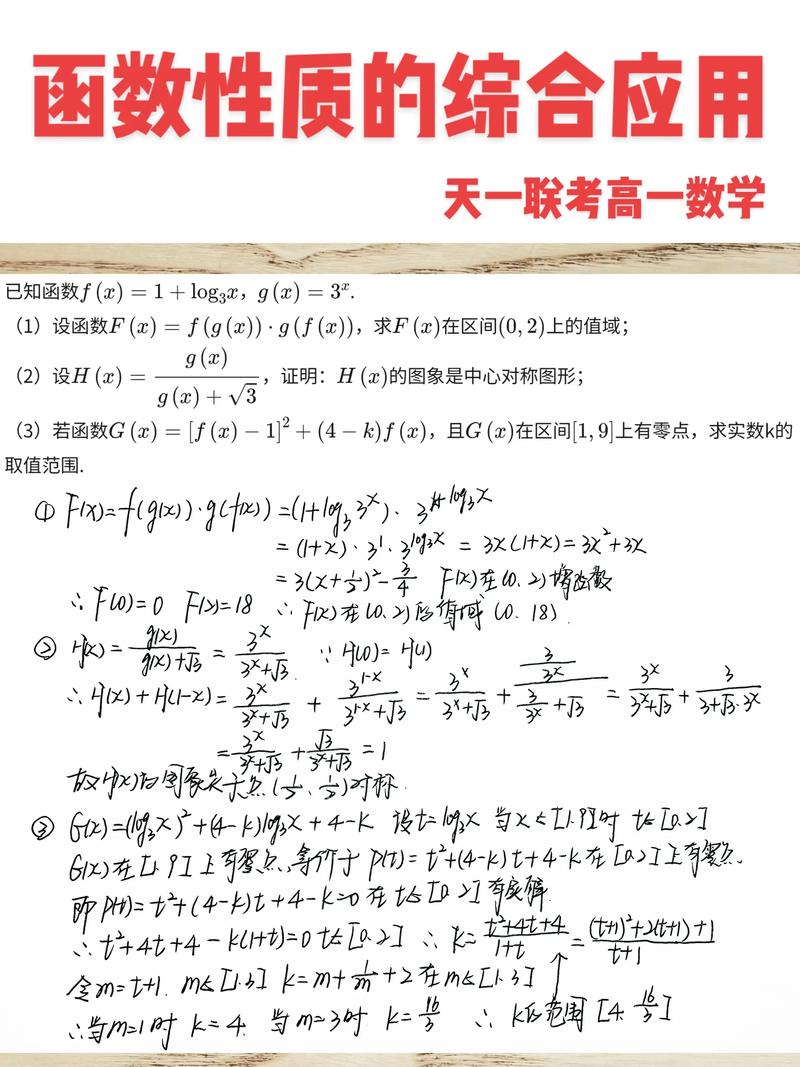 函数性质的综合应用
天一联考高一数学
已知函数f(x)=1+log₃x，g(x)=3ˣ.
（1）设函数F(x)=f(g(x))·g(f(x))，求F(x)在区间(0,2)上的值域；
（2）设H(x)=g(x)/(g(x)+√3)，证明：H(x)的图象是中心对称图形；
（3）若函数G(x)=[f(x)−1]²+(4−k)f(x)，且G(x)在区间[1,9]上有零点，求实数k的
取值范围.
① F(x)=f(g(x))·g(f(x))=(1+log₃3ˣ)·3^(1+log₃x)
=(1+x)·3¹·3^(log₃x)=3x(1+x)=3x²+3x
=3(x+1/2)²−3/4 F(x)在(0,2)增函数
∴F(0)=0 F(2)=18 ∴F(x)在(0,2)的值域(0,18).
② H(x)=g(x)/(g(x)+√3)=3ˣ/(3ˣ+√3) ∵H(0)=H(1)
∴H(x)+H(1−x)=3ˣ/(3ˣ+√3)+3^(1−x)/(3^(1−x)+√3)=3ˣ/(3ˣ+√3)+(3/3ˣ)/(3/3ˣ+√3)=3ˣ/(3ˣ+√3)+3/(3+√3·3ˣ)
=3ˣ/(3ˣ+√3)+√3/(3ˣ+√3)=1
故H(x)的图象关于点(1/2,1/2)对称.
③ G(x)=(log₃x)²+(4−k)log₃x+4−k 设t=log₃x 当x∈[1,9]时 t∈[0,2]
G(x)在[1,9]上有零点,等价于P(t)=t²+(4−k)t+4−k在[0,2]上有零点.
即P(t)=t²+(4−k)t+4−k=0在t∈[0,2]有实解
∴t²+4t+4−k(1+t)=0 t∈[0,2] ∴k=(t²+4t+4)/(1+t)=((t+1)²+2(t+1)+1)/(t+1)
令m=t+1. m∈[1,3] k=m+1/m+2在m∈[1,3]↑
∴当m=1时 k=4. 当m=3时 k=16/3 ∴k的范围[4,16/3]